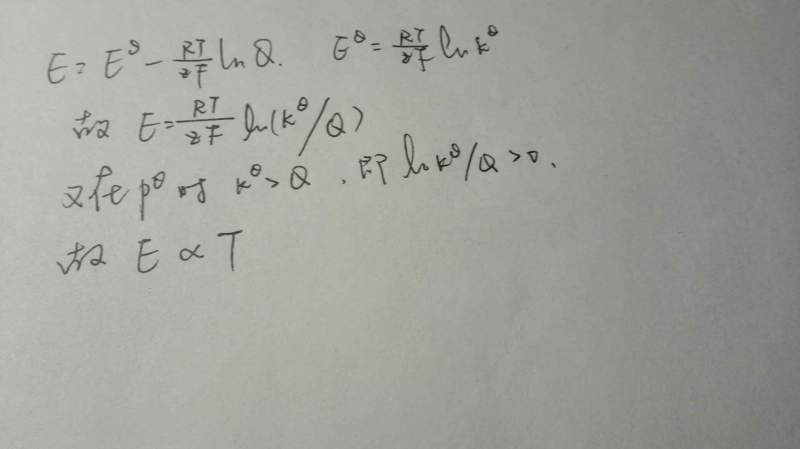 E = E^θ - RT/zF ln Q. E^θ = RT/zF ln K^θ
故 E = RT/zF ln(K^θ/Q)
又在 p^θ 时 K^θ > Q, 即 ln K^θ/Q > 0.
故 E ∝ T